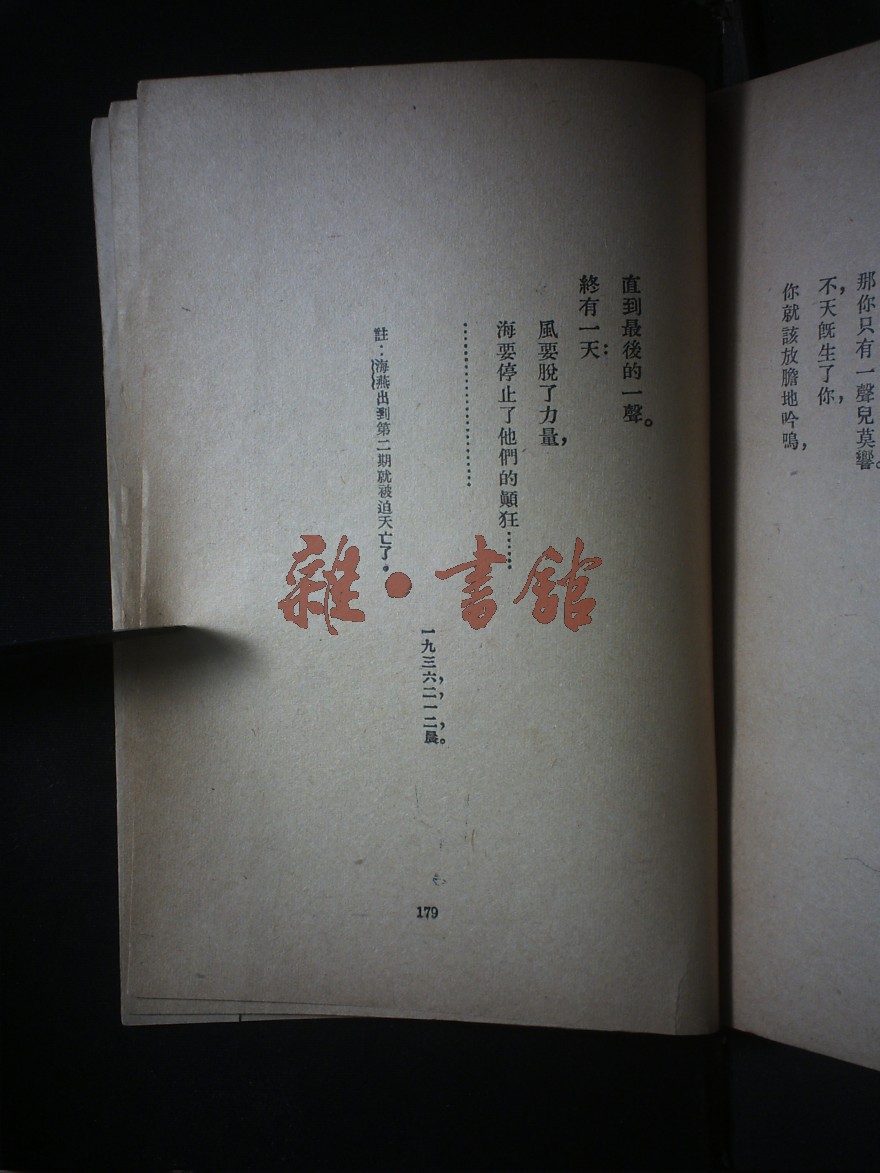 那你只有一聲兒莫響。
不，天既生了你，
你就該放膽地吟鳴，
直到最後的一聲。
終有一天：
風要脫了力量，
海要停止了他們的顛狂……
…………………
一九三六，二，一二，晨。
註：海燕出到第二期就被迫夭亡了。
179
雜·書館